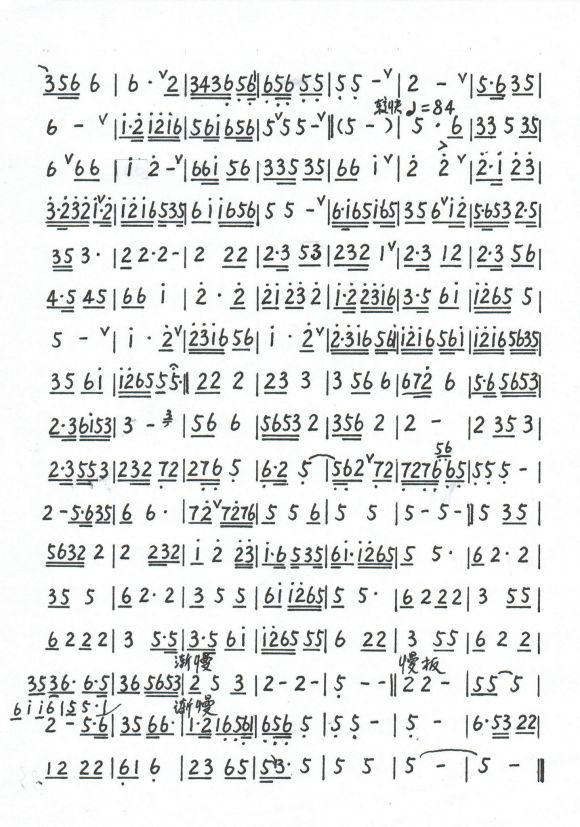 3 5 6 6 | 6 · ∨ 2 | 3 4 3 6 5 6 | 6 5 6 5 5 | 5 5 - ∨ | 2 - ∨ | 5 · 6 3 5 |
较快 ♩=84
6 - ∨ | i · 2 i 2 i 6 | 5 6 i 6 5 6 | 5 ∨ 5 5 - ∨ ‖ (5 - ) | 5 · 6 | 3 3 5 3 5 |
6 ∨ 6 6 | i 2 - ∨ | 6 6 i 5 6 | 3 3 5 3 5 | 6 6 i ∨ | 2 2 ∨ | 2 · i 2 3 |
3 · 2 3 2 i · 2 | i 2 i 6 5 3 5 | 6 i i 6 5 6 | 5 5 - ∨ | 6 · i 6 5 i 6 5 | 3 5 6 ∨ i 2 | 5 · 6 5 3 2 · 5 |
3 5 3 · | 2 2 · 2 - | 2 2 2 | 2 · 3 5 3 | 2 3 2 1 ∨ | 2 · 3 1 2 | 2 · 3 5 6 |
4 · 5 4 5 | 6 6 i | 2 · 2 | 2 i 2 3 2 | i · 2 2 3 i 6 | 3 · 5 6 i | i 2 6 5 5 |
5 - ∨ | i · 2 ∨ | 2 3 i 6 5 6 | i · 2 ∨ | 2 · 3 i 6 5 6 | i 2 i 6 5 6 i | i 2 i 6 5 6 3 5 |
3 5 6 i | i 2 6 5 5 5 · ‖ 2 2 2 | 2 3 3 | 3 5 6 6 | 6 7 2 6 | 5 · 6 5 6 5 3 |
2 · 3 6 i 5 3 | 3 - 3 | 5 6 6 | 5 6 5 3 2 | 3 5 6 2 | 2 - | 2 3 5 3 |
5 6
2 · 3 5 5 3 | 2 3 2 7 2 | 2 7 6 5 | 6 · 2 5 | 5 6 2 ∨ 7 2 | 7 2 7 6 6 5 | 5 5 5 - |
2 - 5 · 6 3 5 | 6 6 · | 7 2 ∨ 7 2 7 6 | 5 5 6 | 5 5 | 5 - 5 - ‖ 5 3 5 |
5 6 3 2 2 | 2 2 3 2 | i 2 2 3 | i · 6 5 3 5 | 6 i · i 2 6 5 | 5 5 · | 6 2 · 2 |
3 5 5 | 6 2 · 2 | 3 5 5 | 6 i i 2 6 5 | 5 5 · | 6 2 2 2 | 3 5 5 |
6 2 2 2 | 3 5 · 5 | 3 · 5 6 i | i 2 6 5 5 5 | 6 2 2 | 3 5 5 | 6 2 2 |
渐慢 慢板
3 5 3 6 · 6 · 5 | 3 6 5 6 5 3 | 2 5 3 | 2 - 2 - | 5 - - ‖ 2 2 - | 5 5 5 |
6 i i 6 | 5 5 · 1 渐慢
2 - 5 · 6 | 3 5 6 6 · | 1 · 2 1 6 5 6 1 | 6 5 6 5 | 5 5 - | 5 - | 6 · 5 3 2 2 |
1 2 2 2 | 6 1 6 | 2 3 6 5 | 5 3 · 5 | 5 5 | 5 - | 5 - ‖